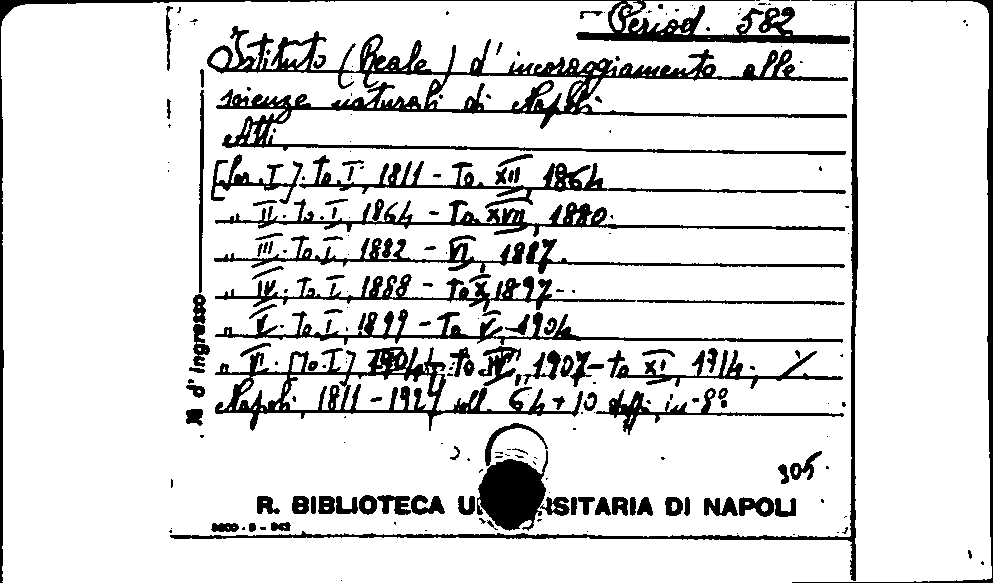 Period. 582
Istituto (Reale) d' incoraggiamento alle
scienze naturali di Napoli.
Atti.
[Ser. I]. To. I, 1811 - To. XII, 1864
" II. To. I, 1864 - To. XVII, 1880.
" III. To. I, 1882 - VI, 1887.
" IV; To. I, 1888 - To X, 1897-.
" V. To. I, 1899 - To V, 1904
" VI. [To. I], 1904 - To IV, 1907 - to XI, 1914; ./.
Napoli, 1811 - 1927 voll. 64 + 10 in-8°
N d' Ingresso
305.
R. BIBLIOTECA UNIVERSITARIA DI NAPOLI